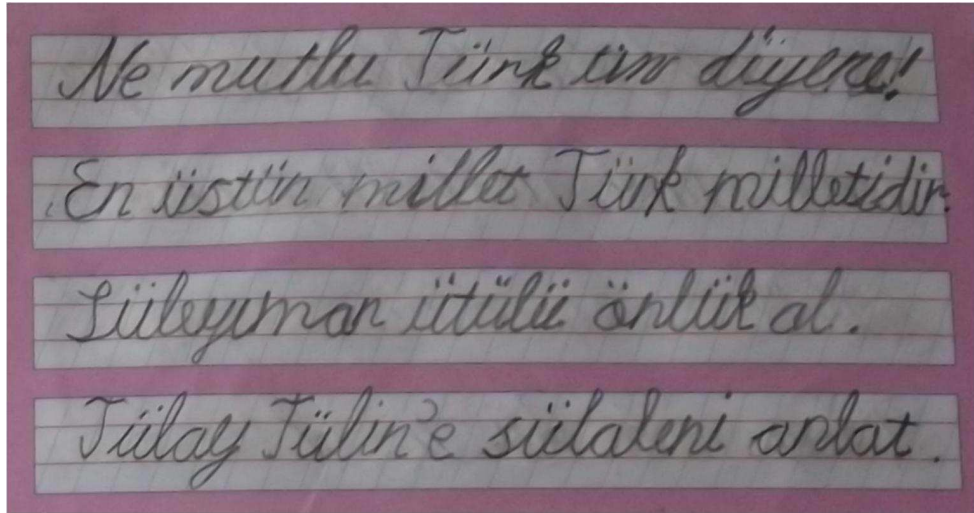 Ne mutlu Türk üm diyene!
En üstün millet Türk milletidir.
Süleyman ütülü önlük al.
Tülay Tülin'e sülaleni anlat.